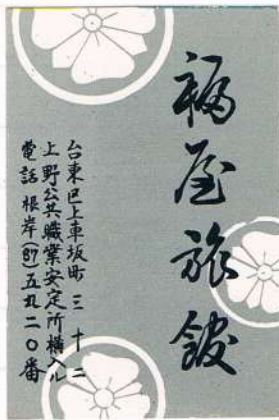 福屋旅館
台東区上車坂町三十二
上野公共職業安定所横入ル
電話根岸(87)五九二〇番